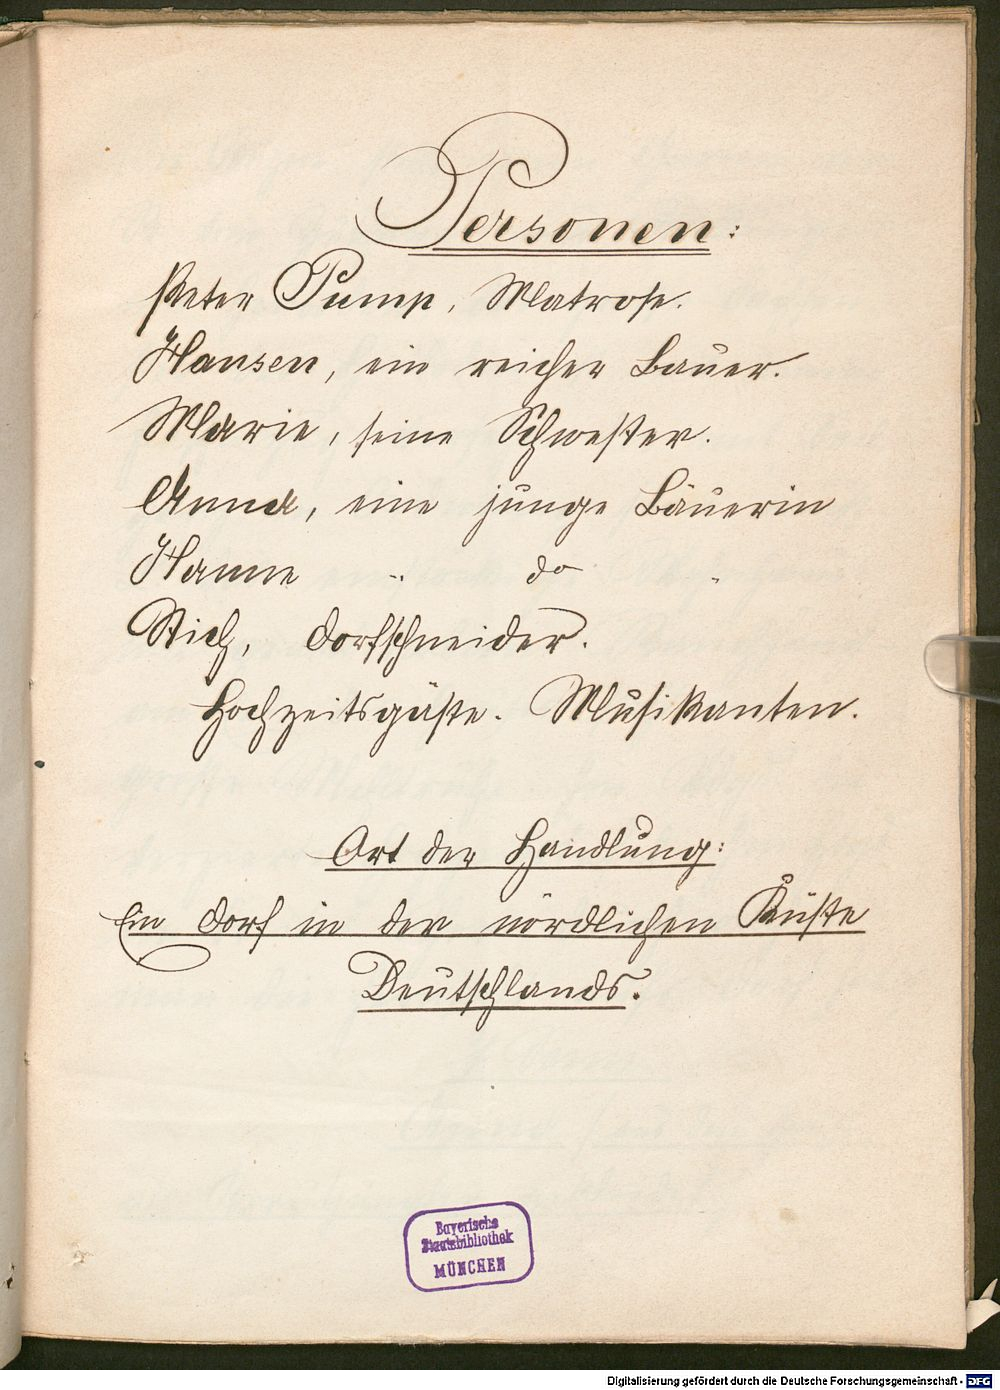 Personen:
Peter Pump, Matrose.
Hansen, ein reicher Bauer.
Marie, seine Schwester.
Anna, eine junge Bäuerin
Hanne " do "
Stich, Dorfschneider.
Hochzeitsgäste. Musikanten.
Ort der Handlung:
Ein Dorf in der nördlichen Küste
Deutschlands.
Bayerische
Staatsbibliothek
MÜNCHEN
Digitalisierung gefördert durch die Deutsche Forschungsgemeinschaft - DFG